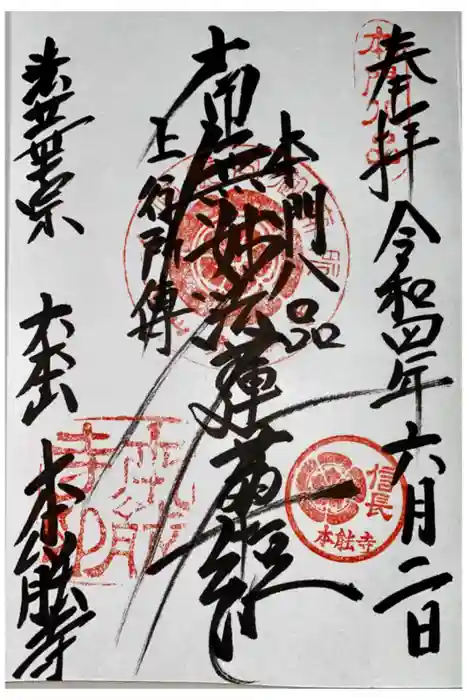 奉拝
令和四年六月二日
本門八品
南無妙法蓮華経
上行所傳
法華宗
大本山
本能寺
信長
本能寺